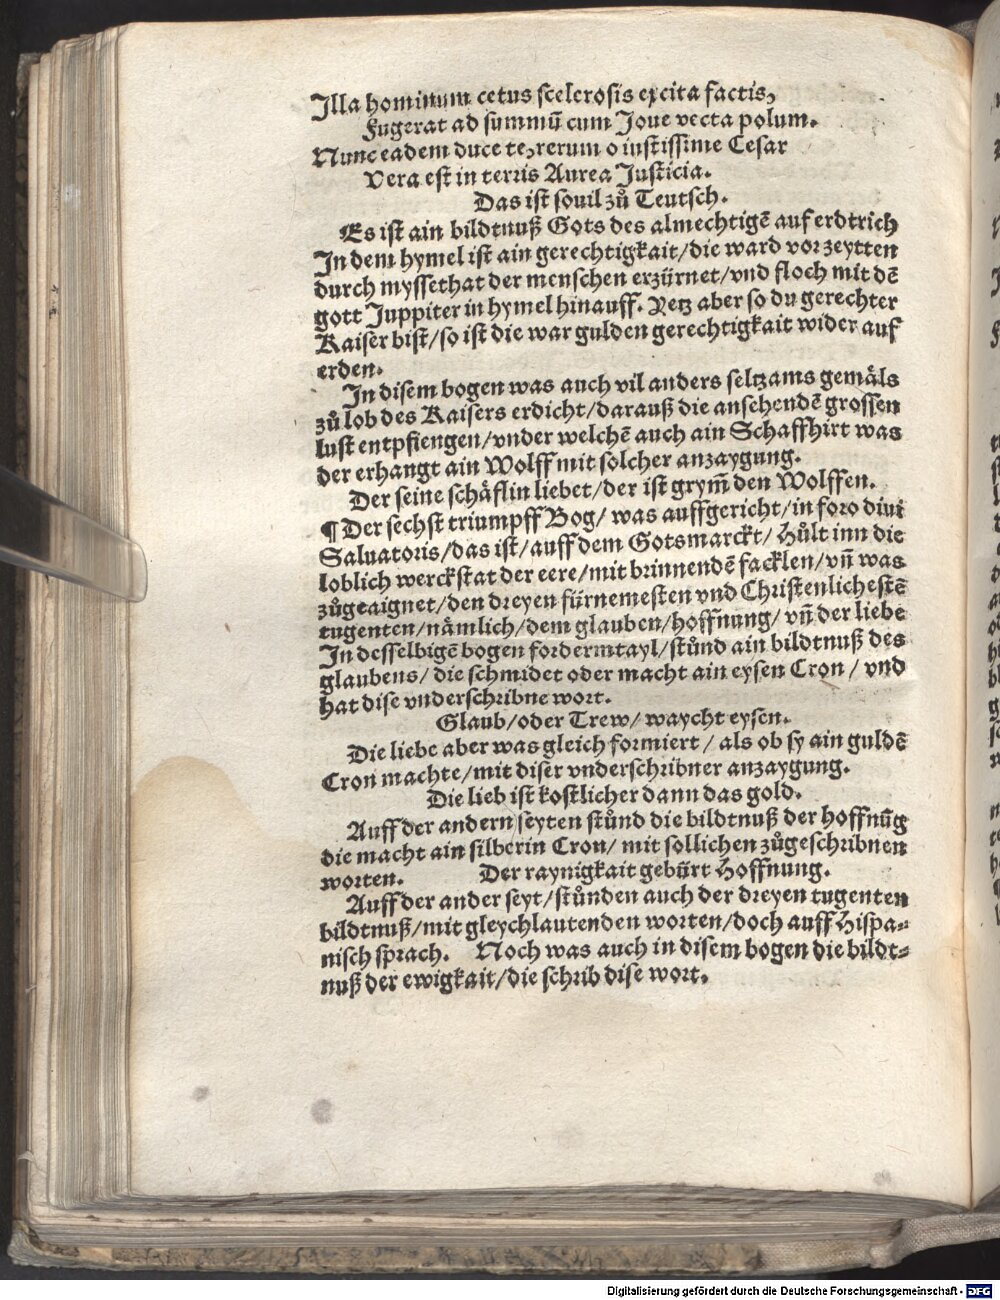 Illa hominum cetus scelerosis excita factis,
Fugerat ad summū cum Joue vecta polum.
Nunc eadem duce te, rerum o iustissime Cesar
Vera est in terris Aurea Justicia.
Das ist souil zů Teutsch.
Es ist ain bildtnuß Gots des almechtigē auf erdtrich
In dem hymel ist ain gerechtigkait/die ward vorzeytten
durch myssethat der menschen erzürnet/vnd floch mit dē
gott Juppiter in hymel hinauff. Yetz aber so du gerechter
Kaiser bist/so ist die war gulden gerechtigkait wider auf
erden.
In disem bogen was auch vil anders seltzams gemäls
zů lob des Kaisers erdicht/darauß die ansehendē grossen
lust entpfiengen/vnder welchē auch ain Schaffhirt was
der erhangt ain Wolff mit solcher anzaygung.
Der seine schäflin liebet/der ist grym̄ den Wolffen.
¶ Der sechst triumpff Bog/ was auffgericht/in foro diui
Saluatoris/das ist/auff dem Gotsmarckt/ Hůlt inn die
loblich werckstat der eere/mit brinnendē facklen/vn̄ was
zůgeaignet/den dreyen fürnemesten vnd Christenlichestē
tugenten/nämlich/dem glauben/hoffnung/ vn̄ der liebe
In desselbigē bogen fordermtayl/stůnd ain bildtnuß des
glaubens/ die schmidet oder macht ain eysen Cron / vnd
hat dise vnderschribne wort.
Glaub/oder Trew/ waycht eysen.
Die liebe aber was gleich formiert / als ob sy ain guldē
Cron machte/mit diser vnderschribner anzaygung.
Die lieb ist kostlicher dann das gold.
Auff der andern seyten stůnd die bildtnuß der hoffnūg
die macht ain silberin Cron/ mit sollichen zůgeschribnen
worten. Der raynigkait gebürt Hoffnung.
Auff der ander seyt/stůnden auch der dreyen tugenten
bildtnuß/mit gleychlautenden worten/doch auff Hispa⸗
nisch sprach. Noch was auch in disem bogen die bildt⸗
nuß der ewigkait/die schrib dise wort.
Digitalisierung gefördert durch die Deutsche Forschungsgemeinschaft - DFG